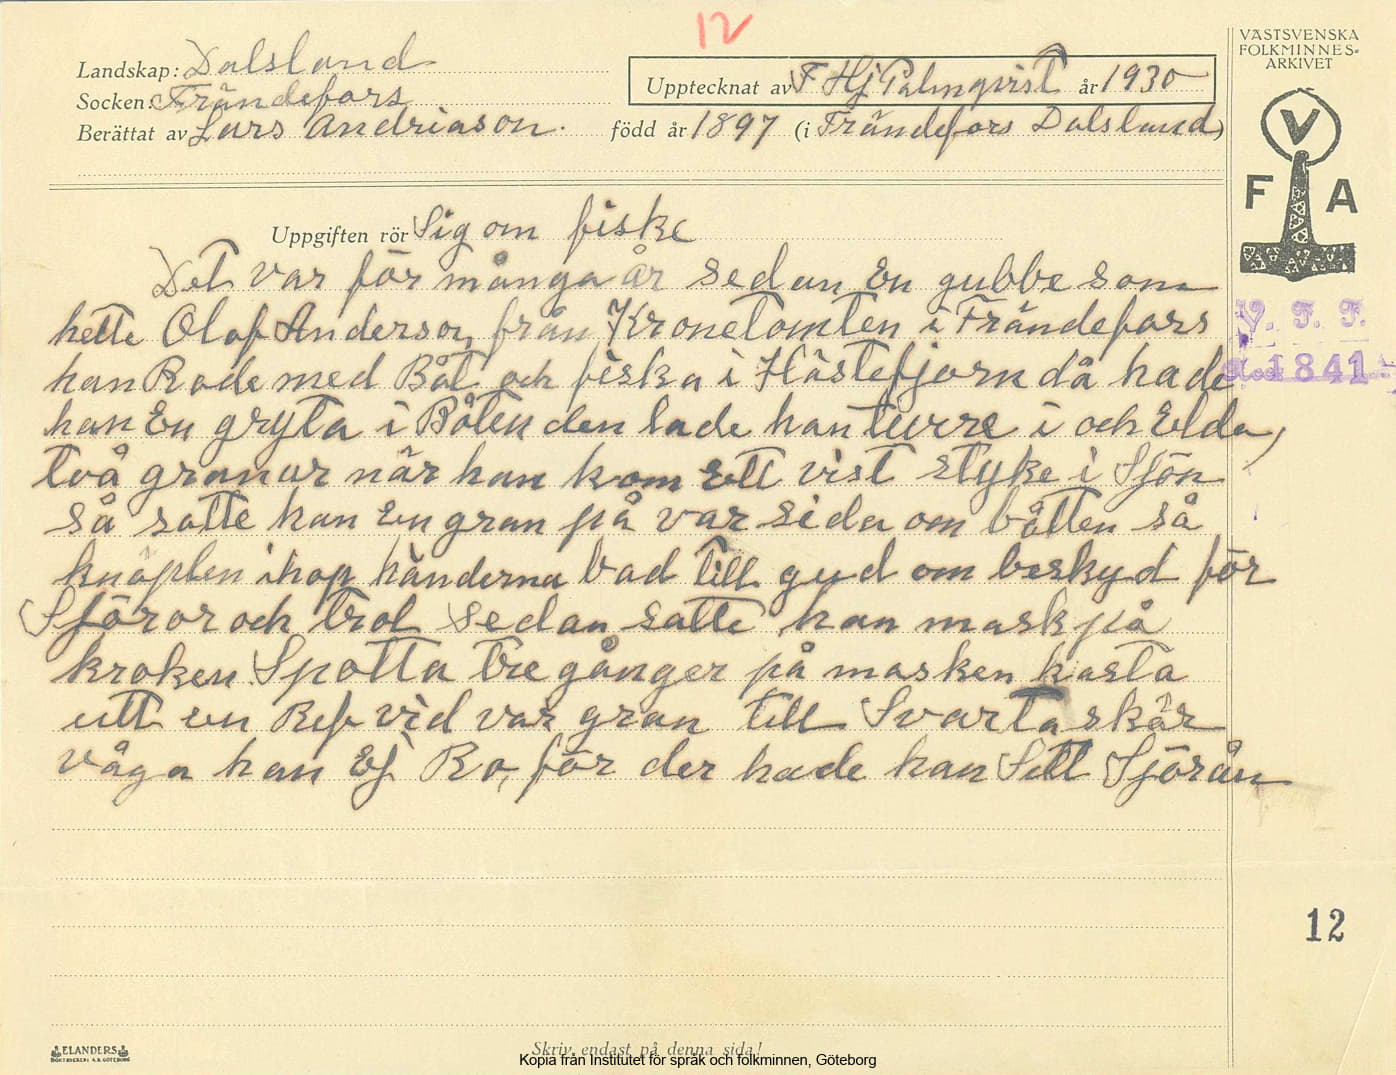 12
VÄSTSVENSKA
FOLKMINNES-
ARKIVET
Landskap: Dalsland
Upptecknat av F Hj Palmqvist år 1930
Socken: Frändefors
Berättat av Lars Andriason. född år 1897 (i Frändefors Dalsland)
V
F A
Uppgiften rör Sig om fiske
Det var för många år sedan En gubbe som
hette Olof Anderson från Kronetomten i Frändefors
han Rode med Båt och fiska i Hästefjorn då hade
V. F. F.
1841
han En gryta i Båten den lade han turre i och Elda,
två granar när han kom Ett vist styke i Sjön
så satte han En gran på var sida om båtten så
knäpten ihop händerna bad till gud om beskyd för
Sjöror och trol Sedan satte han mask på
kroken Spotta tre gånger på masken kasta
utt en Ref vid var gran till Svarta skär
våga han Ej Ro, för der hade han Sett Sjörån
12
ELANDERS
BOKTRYCKERI A.B. GÖTEBORG
Skriv endast på denna sida!
Kopia från Institutet för språk och folkminnen, Göteborg